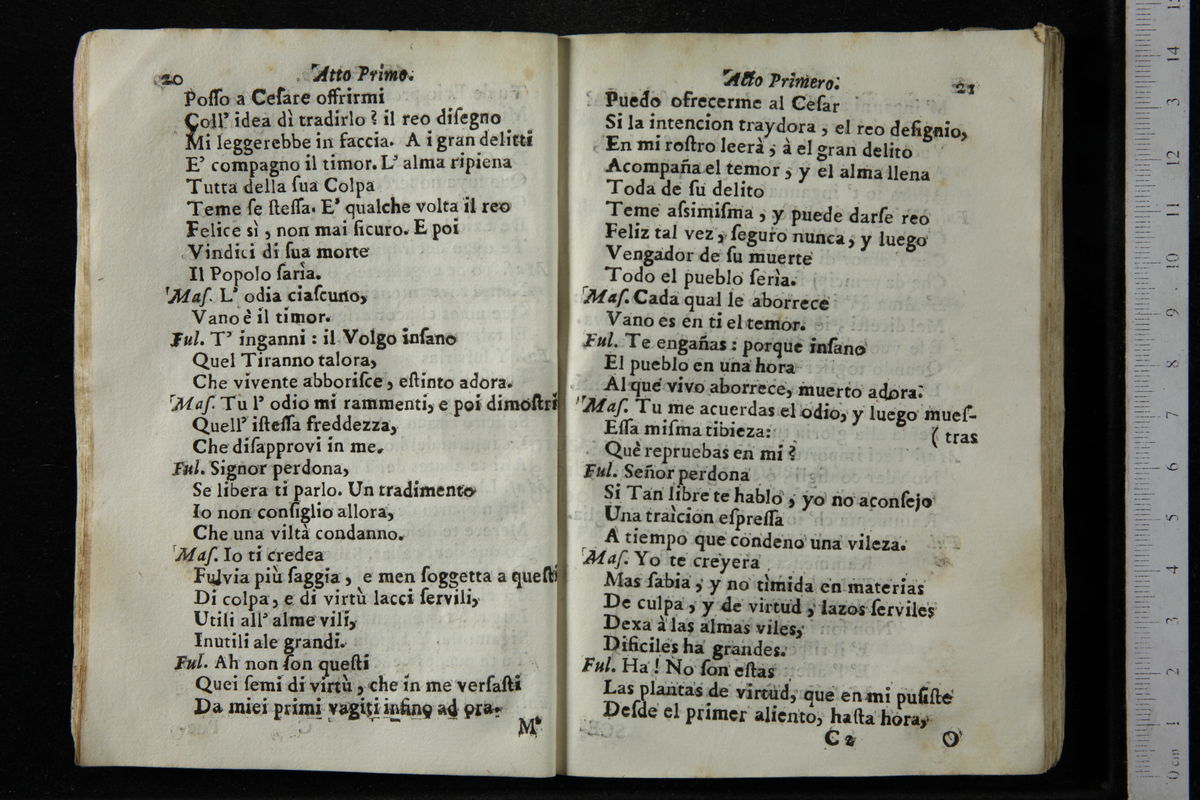 20 Atto Primo.
Poſſo a Ceſare offrirmi
Coll' idea dì tradirlo? il reo diſegno
Mi leggerebbe in faccia. A i gran delitti
E' compagno il timor. L' alma ripiena
Tutta della ſua Colpa
Teme ſe ſteſſa. E' qualche volta il reo
Felice sì, non mai ſicuro. E poi
Vindici di ſua morte
Il Popolo ſarìa.
Maſ. L' odia ciaſcuno,
Vano è il timor.
Ful. T' inganni: il Volgo inſano
Quel Tiranno talora,
Che vivente abboriſce, eſtinto adora.
Maſ. Tu l' odio mi rammenti, e poi dimoſtri
Quell' iſteſſa freddezza,
Che diſapprovi in me.
Ful. Signor perdona,
Se libera ti parlo. Un tradimento
Io non conſiglio allora,
Che una viltà condanno.
Maſ. Io ti credea
Fulvia più ſaggia, e men ſoggetta a queſti
Di colpa, e di virtù lacci ſervili,
Utili all' alme vili,
Inutili ale grandi.
Ful. Ah non ſon queſti
Quei ſemi di virtù, che in me verſaſti
Da miei primi vagiti infino ad ora.
M'
Acto Primero. 21
Puedo ofrecerme al Ceſar
Si la intencion traydora, el reo deſignio,
En mi roſtro leerà, à el gran delito
Acompaña el temor, y el alma llena
Toda de ſu delito
Teme aſsimiſma, y puede darſe reo
Feliz tal vez, ſeguro nunca, y luego
Vengador de ſu muerte
Todo el pueblo ſerìa.
Maſ. Cada qual le aborrece
Vano es en ti el temor.
Ful. Te engañas: porque inſano
El pueblo en una hora
Al que vivo aborrece, muerto adora.
Maſ. Tu me acuerdas el odio, y luego mueſ-
Eſſa miſma tibieza: ( tras
Què repruebas en mi?
Ful. Señor perdona
Si Tan libre te hablo, yo no aconſejo
Una traìcion eſpreſſa
A tiempo que condeno una vileza.
Maſ. Yo te creyera
Mas ſabia, y no tìmida en materias
De culpa, y de virtud, lazos ſerviles
Dexa à las almas viles,
Dificiles ha grandes.
Ful. Ha! No ſon eſtas
Las plantas de virtud, que en mi puſiſte
Deſde el primer aliento, haſta hora,
C 2 O